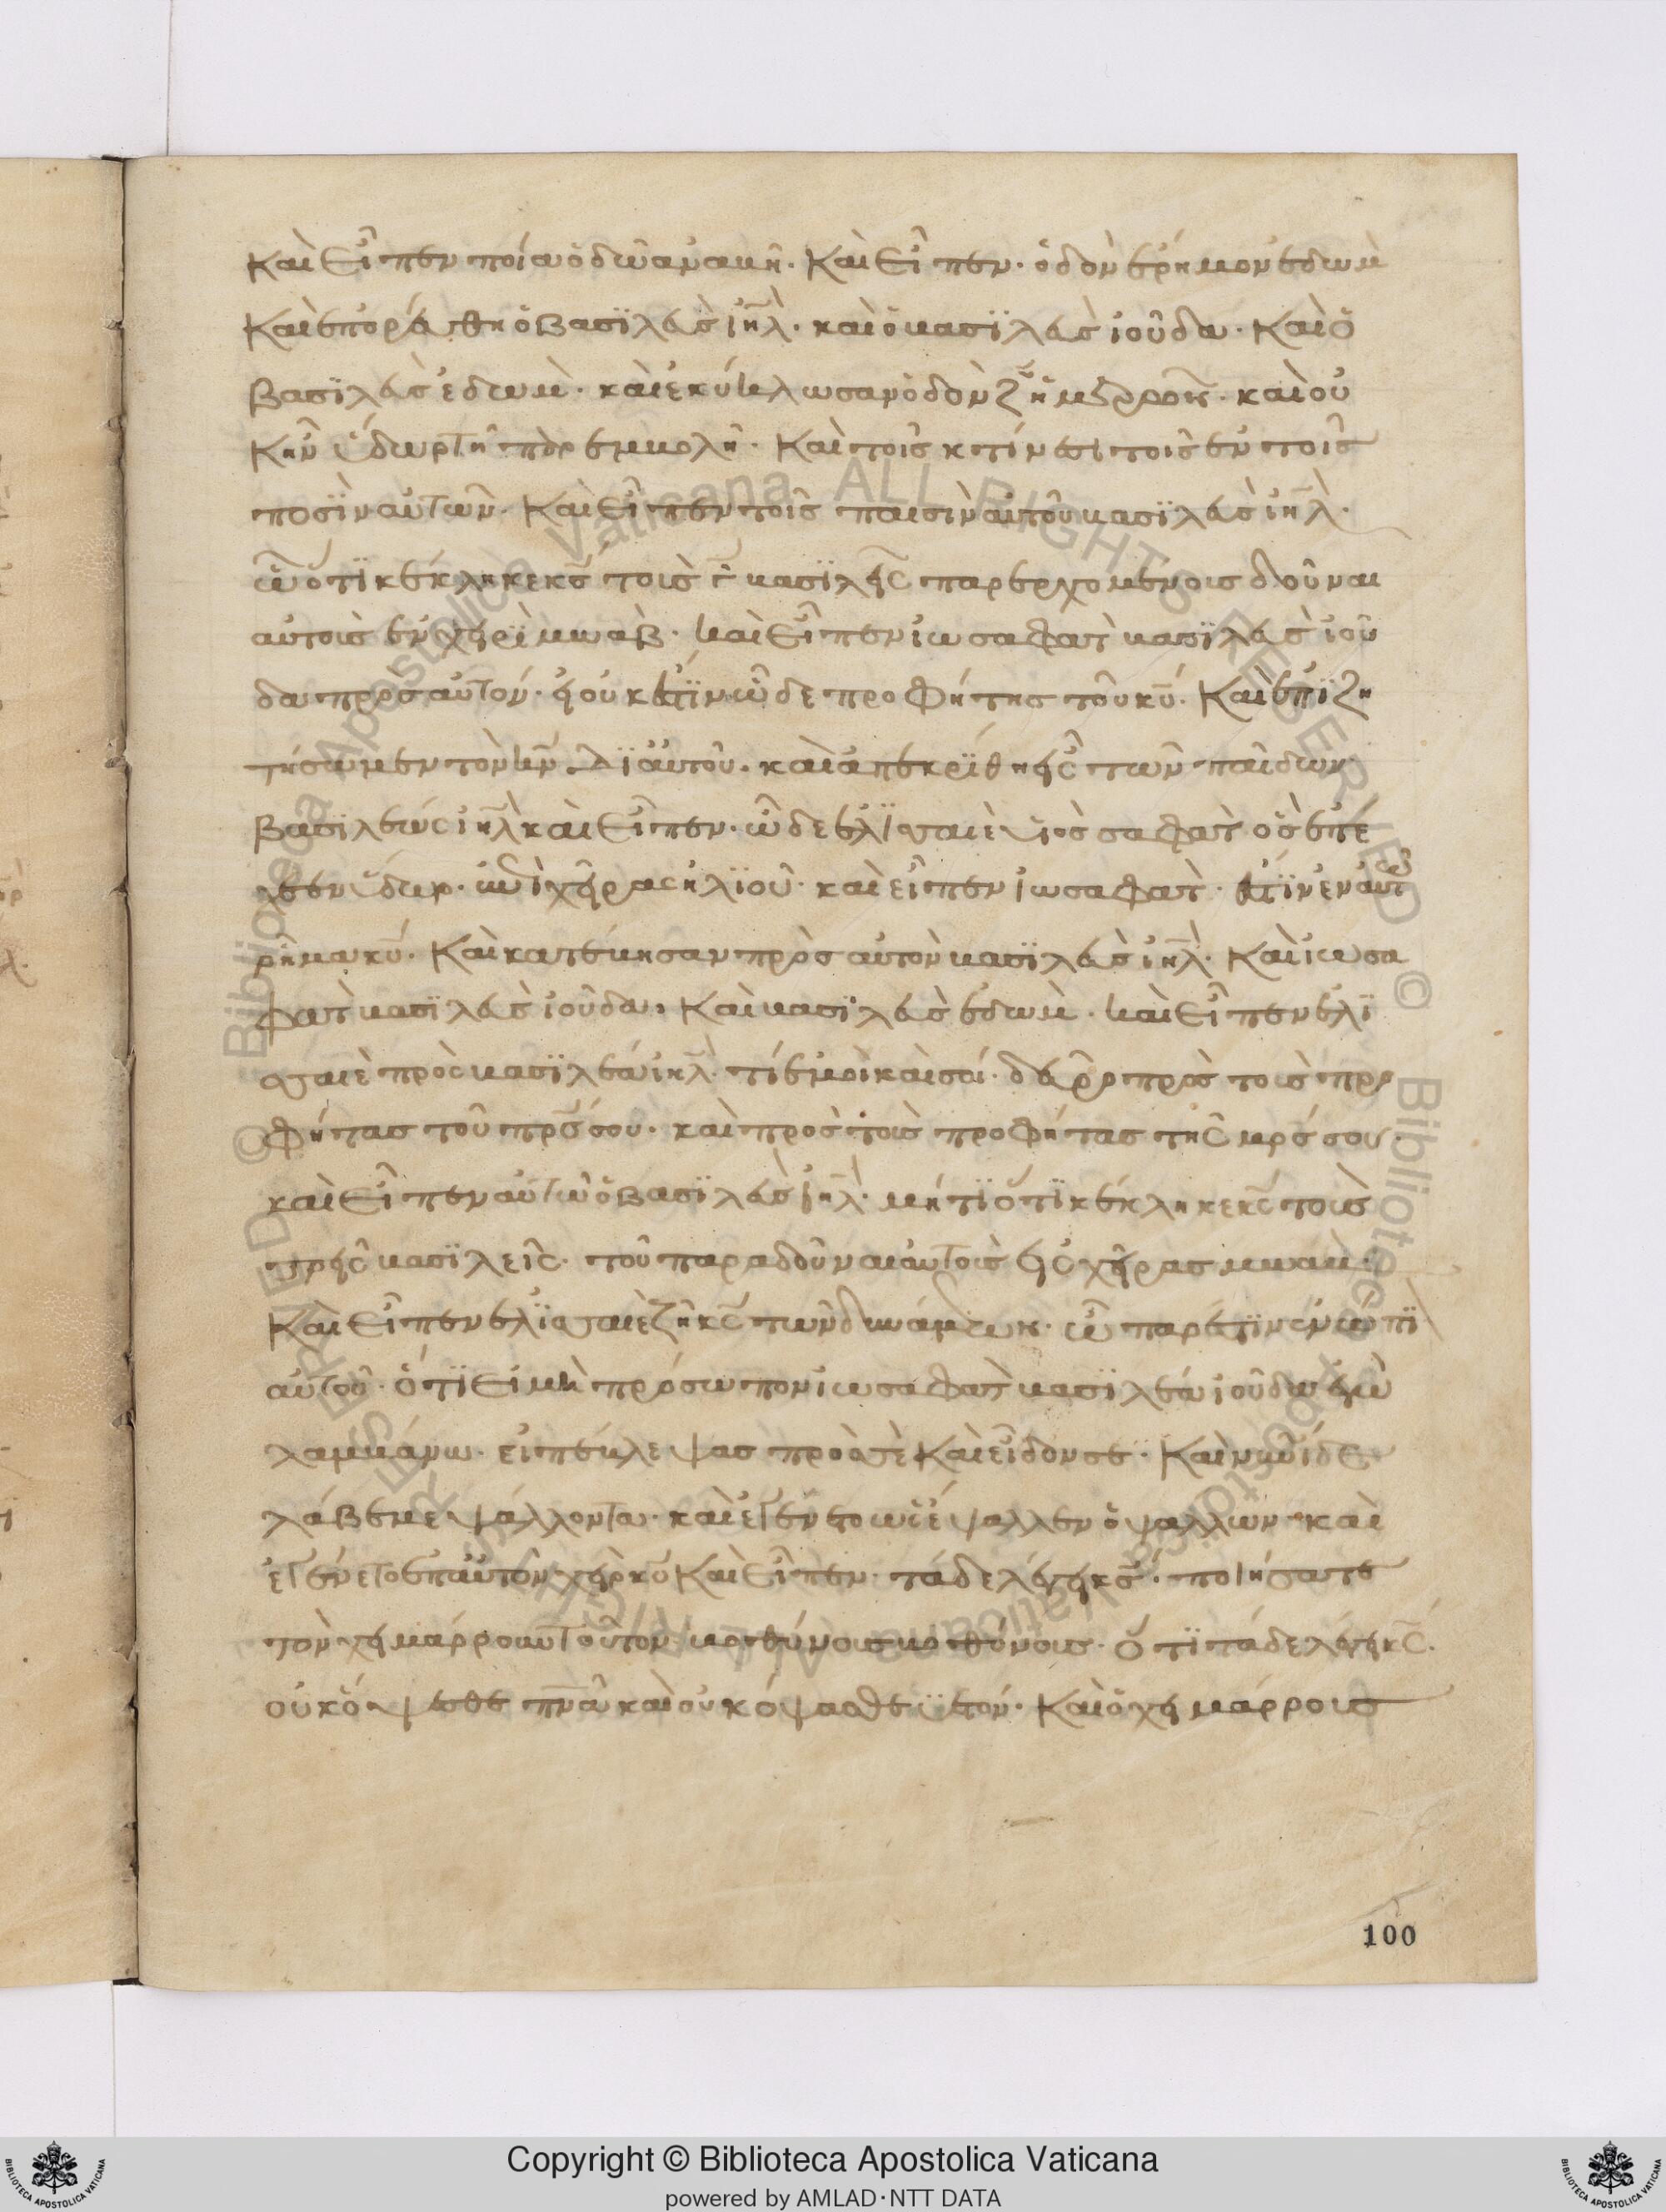 καὶ εἶπεν ποία ὁδῶ ἀναβῆ· καὶ εἶπεν· ὁδὸν ἔρημον ἐδὼμ
καὶ ἐπορεύθη ὁ βασϊλεὺς ἰη̅λ̀· καὶ ὁ βασϊλεὺς ἰοῦδα· καὶ ὁ
βασϊλεὺς ἐδὼμ· καὶ ἐκύκλωσαν ὁδὸν ζ̅ ἡμερῶν· καὶ οὐ
κ ἦν ὕδωρ τῆ παρεμβολῆ· καὶ τοῖς κτήνεσι τοῖς ἐν τοῖς
ποσὶν αὐτῶν· καὶ εἶπεν τοῖς παισὶν αὐτοῦ βασϊλεὺς ἰη̅λ̀·
ὦ ὅτϊ κέκληκε κ̅ς̅ τοὺς γ̅ βασϊλεῖς παρερχομένους δοῦναι
αὐτοὺς ἐν χειρὶ μωαβ· καὶ εἶπεν ἰωσαφὰτ βασϊλεὺς ἰοῦ
δα πρὸς αὐτόν· εἰ οὐκ ἔστϊν ὧδε προφήτης τοῦ κ̅υ̅· καὶ ἐπϊζη
τήσωμεν τὸν κ̅ν̅ δϊ αὐτοῦ· καὶ ἀπεκρίθη εἷς τῶν παίδων
βασιλέως ἰη̅λ̀ καὶ εἶπεν· ὧδε ἐλϊσσαιὲ υἱὸς σαφὰτ ὃς ἐπέ
χεεν ὕδωρ ἐπὶ χεῖρας ἠλϊοῦ· καὶ εἶπεν ἰωσαφὰτ· ἔστϊν ἐν αὐτῶ
ῥῆμα κ̅υ̅· καὶ κατέβησαν πρὸς αὐτὸν βασϊλεὺς ἰη̅λ̀· καὶ ἰωσα
φὰτ βασϊλεὺς ἰοῦδα· καὶ βασϊλεὺς ἐδὼμ· καὶ εἶπεν ἐλϊ
σσαιὲ πρὸς βασϊλέα ἰη̅λ̀· τί ἐμοὶ καὶ σοί· δεῦρο πρὸς τοὺς προ
φήτας τοῦ πρ̅ς̅ σου· καὶ πρὸς τοὺς προφήτας τῆς μρ̅ς̅ σου·
καὶ εἶπεν αὐτῶ ὁ βασϊλεὺς ἰη̅λ̀· μή τϊ ὅτϊ κέκληκε κ̅ς̅ τοὺς
τρεῖς βασϊλεῖς· τοῦ παραδοῦναι αὐτοὺς εἰς χεῖρας μωαβ·
καὶ εἶπεν ἐλϊσσαιὲ ζῆ κ̅ς̅ τῶν δυνάμεων· ὧ παρέστϊν ἐνώπϊ
αὐτοῦ· ὅτϊ εἰ μὴ πρόσωπον ἰωσαφὰτ βασϊλέα ἰοῦδα ἐγὼ
λαμβάνω· εἰ ἐπέβλεψας πρὸς σὲ καὶ εἶδον σε· καὶ νῦν ἰδὲ
λάβε με ψάλλοντα· καὶ ἐγένετο ὡς ἔψαλλεν ὁ ψάλλων καὶ
ἐγένετο ἐπ αὐτὸν χεὶρ κ̅υ̅ καὶ εἶπεν· τάδε λέγει κ̅ς̅· ποιήσατε
τὸν χειμάρρουν τοῦτον βοθύνους βοθύνους· ὅτϊ τάδε λέγει κ̅ς̅·
οὐκ ὄψεσθε πν̅α̅ καὶ οὐκ ὄψεσθε ὑετόν· καὶ ὁ χειμάρρους
100
Copyright © Biblioteca Apostolica Vaticana
powered by AMLAD·NTT DATA